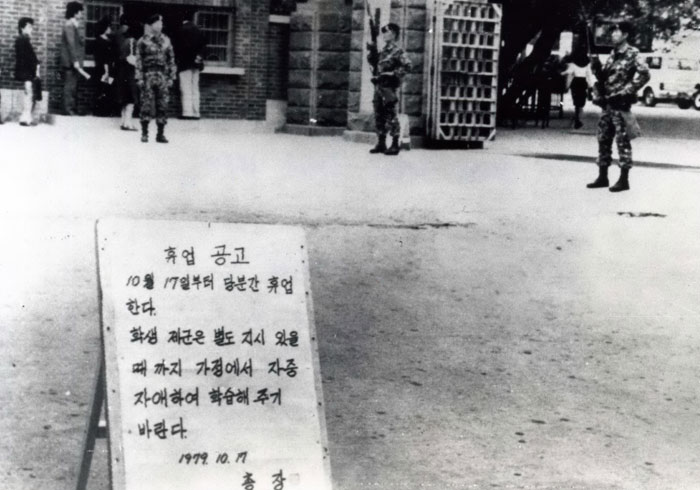 휴업 공고
10월 17일부터 당분간 휴업
한다.
학생 제군은 별도 지시 있을
때 까지 가정에서 자중
자애하여 학습해 주기
바란다.
1979. 10. 17
총 장